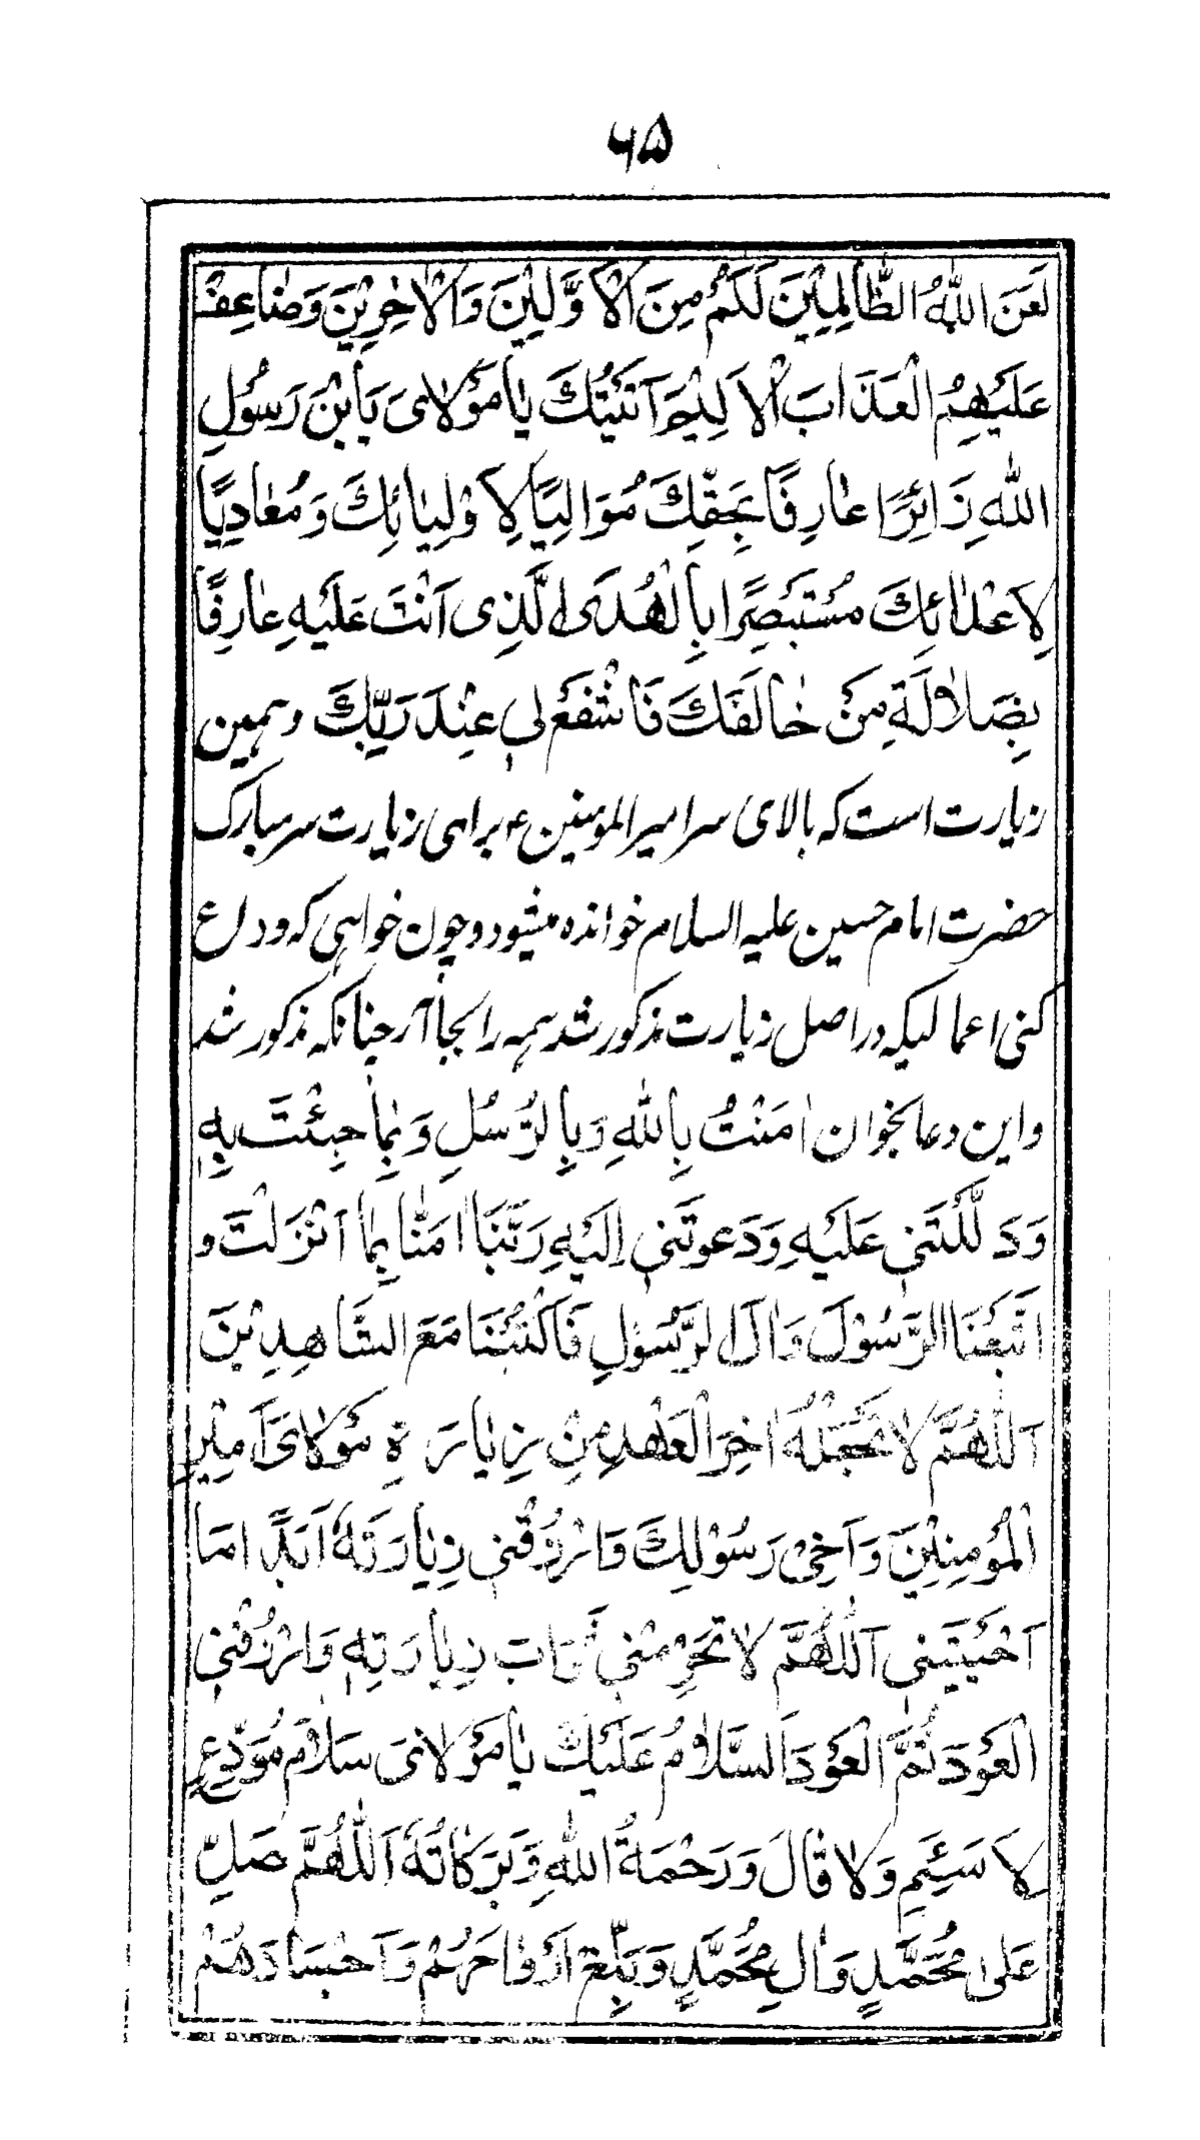 ۶۵
لَعَنَ اللّٰهُ الظّٰالِمِیْنَ لَکُمْ مِنَ الْاَوَّلِیْنَ وَالْاٰخِرِیْنَ وَضٰاعِفْ
عَلَیْهِمُ الْعَذَابَ الْاَلِیْمَ اَتَیْتُكَ یٰا مَوْلٰایَ یَابْنَ رَسُوْلِ
اللّٰهِ زَائِرًا عٰارِفًا بِحَقِّكَ مُوَالِیًا لِاَوْلِیٰائِكَ وَمُعٰادِیًا
لِاَعْدٰائِكَ مُسْتَبْصِرًا بِالْهُدَی الَّذِی اَنْتَ عَلَیْهِ عٰارِفًا
بِضَلٰالَةِ مَنْ خٰالَفَكَ فَاشْفَعْ لِی عِنْدَ رَبِّكَ وهمین
زیارت است که بالای سر امیر المومنین ع برای زیارت سر مبارک
حضرت امام حسین علیه السلام خوانده میشود و چون خواهی که وداع
کنی اعمالیکه در اصل زیارت مذکور شد همه را بجا آر چنانکه مذکور شد
و این دعا بخوان اٰمَنْتُ بِاللّٰهِ وَبِالرُّسُلِ وَبِمٰا جِئْتَ بِهٖ
وَدَلَلْتَنِی عَلَیْهِ وَدَعَوْتَنِی اِلَیْهِ رَبَّنَا اٰمَنّٰا بِمٰا اَنْزَلْتَ و
اتَّبَعْنَا الرَّسُوْلَ وَاٰلَ الرَّسُوْلِ فَاکْتُبْنَا مَعَ الشَّاهِدِیْنَ
اَللّٰهُمَّ لَا تَجْعَلْهُ اٰخِرَ الْعَهْدِ مِنْ زِیٰارَةِ مَوْلٰایَ اَمِیْرِ
الْمُؤْمِنِیْنَ وَاَخِیْ رَسُوْلِكَ وَارْزُقْنِی زِیٰارَتَهٗ اَبَدًا مَا
اَحْیَیْتَنِی اَللّٰهُمَّ لَا تَحْرِمْنِی ثَوَابَ زِیٰارَتِهٖ وَارْزُقْنِی
الْعَوْدَ ثُمَّ الْعَوْدَ اَلسَّلٰامُ عَلَیْكَ یٰا مَوْلٰایَ سَلٰامَ مُوَدِّعٍ
لَا سَئِمٍ وَلَا قٰالَ وَرَحْمَةُ اللّٰهِ وَبَرَکٰاتُهٗ اَللّٰهُمَّ صَلِّ
عَلٰی مُحَمَّدٍ وَاٰلِ مُحَمَّدٍ وَبَلِّغْ اَرْوٰاحَهُمْ وَاَجْسَادَهُمْ